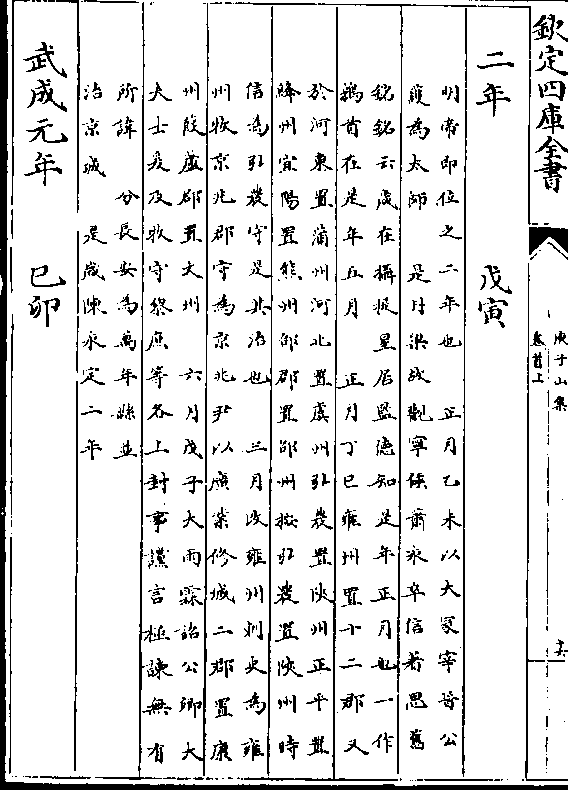 欽定四庫全書
庾子山集
卷首上
二年　戊寅
明帝即位之二年也　正月乙未以大冢宰晉公
䕶為太師　是月梁故觀寧侯蕭永卒信著思舊
銘銘云歲在攝提星居監德知是年正月也一作
鶉首在是年五月　正月丁巳雍州置十二郡又
於河東置蒲州河北置虞州弘農置陜州正平置
絳州宜陽置熊州邵郡置邵州按弘農置陜州時
信為弘農守是其治也　三月改雍州刺史為雍
州牧京兆郡守為京兆尹以廣業修城二郡置康
州葭蘆郡置文州　六月戊子大雨霖詔公卿大
夫士爰及牧守黎庶等各上封事讜言極諫無有
所諱　分長安為萬年縣並
治京城　是歲陳永定二年
武成元年　己卯